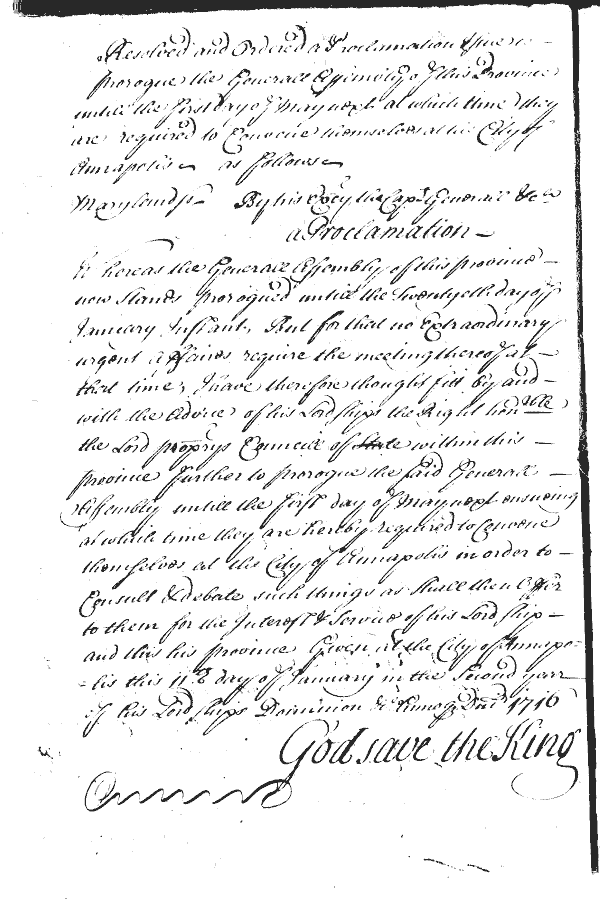 Resolved and Ordered a Proclamation Issue to
prorogue the Generall Assembly of this Province
untill the first day of May next at which time they
are required to Convene themselves at the City of
Annapolis as follows
Maryland ss By his Exc̃y the Capt Generall &c
a Proclamation
Whereas the Generall Assembly of this province
now stands prorogued untill the Twentyeth day of
January Instant, But for that no Extraordinary
urgent affaires require the meeting thereof at
that time, I have therefore thought fitt by and
with the Advice of his Lordships the Right honble
the Lord proprys Councill of State within this
province further to prorogue the said Generall
Assembly untill the first day of May next ensueing
at which time they are hereby required to Convene
themselves at the City of Annapolis in order to
Consult & debate such things as shall then Offer
to them for the Interest & Service of his Lordship
and this his province Given at the City of Annapo-
-lis this 11th day of January in the Second year
of his Lordships Dominion &c Annoq Dni 1716
God save the King